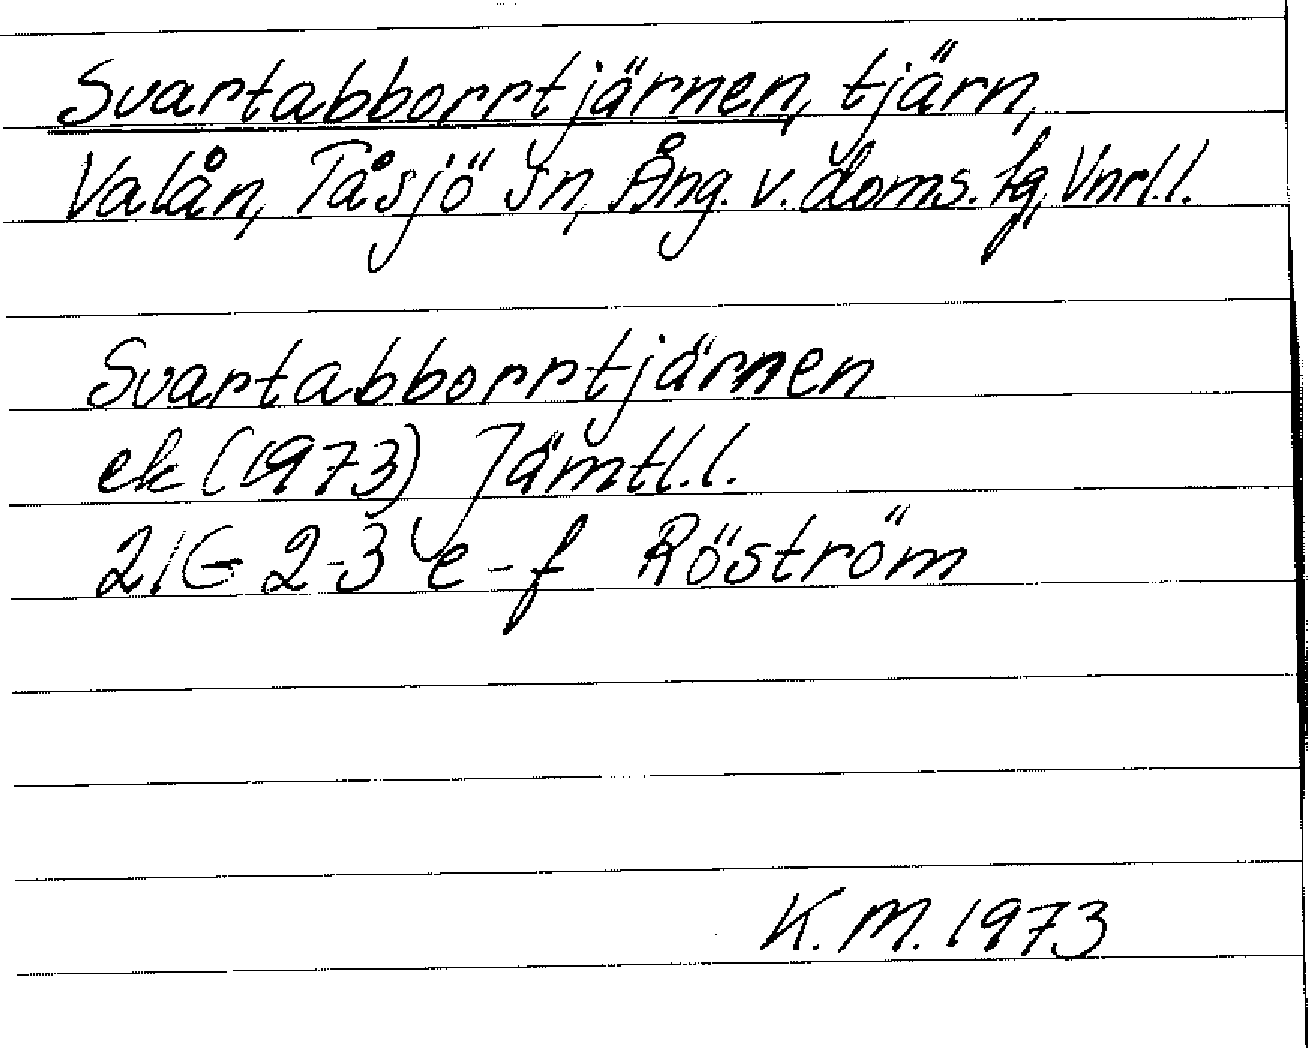 Svartabborrtjärnen, tjärn,
Valån, Tåsjö sn, Ång. v. doms. tg, Vnrl.l.
Svartabborrtjärnen
ek (1973) Jämtl.l.
21G 2-3 e-f Röström
K.M. 1973